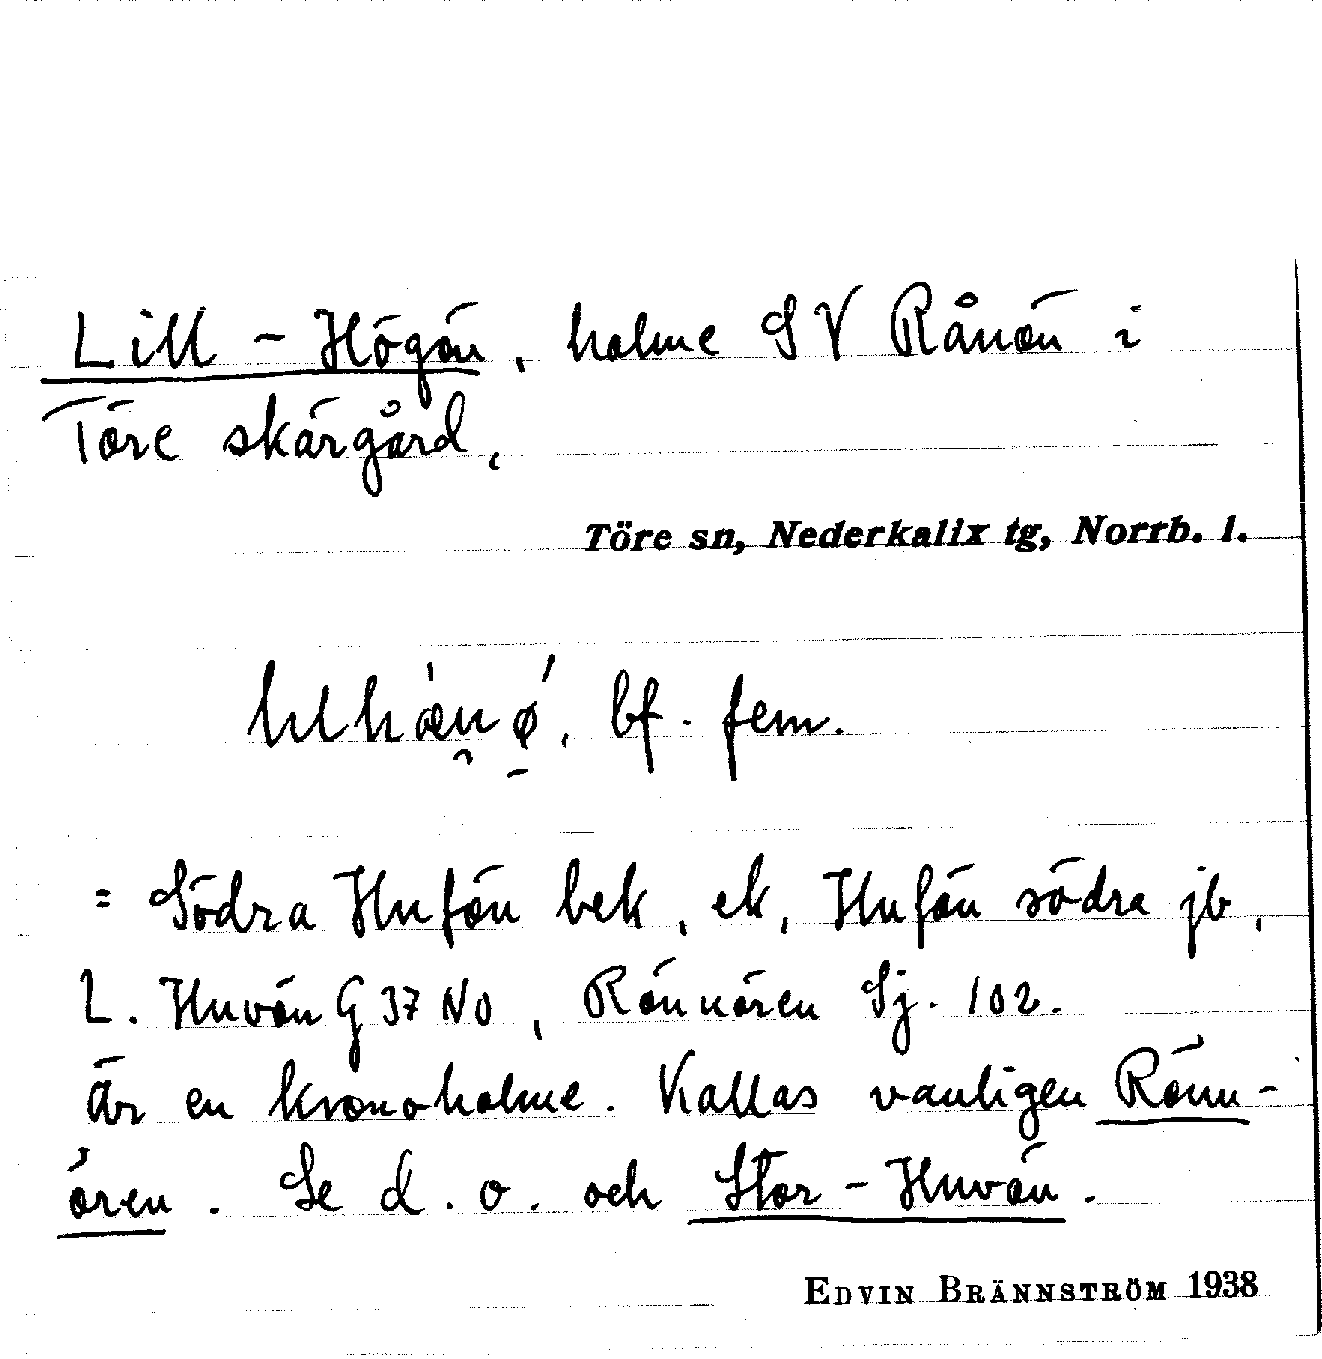 Lill-Högön, holme SV Rånön i
Töre skärgård,
Töre sn, Nederkalix tg, Norrb. l.
bf. fem.
= Södra Hufön bek, ek, Hufön södra jb,
L. Huvön G 37 NO, Rönnören Sj. 102.
Är en kronoholme. Kallas vanligen Rönn-
ören. Se d. o. och Stor-Huvön.
EDVIN BRÄNNSTRÖM 1938